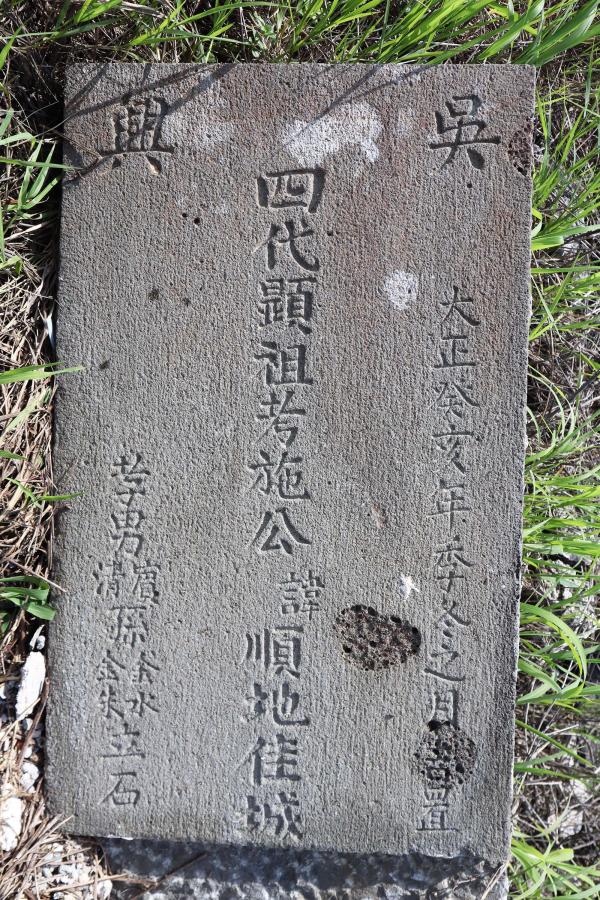 吳興
大正癸亥年季冬之月吉置
四代顯祖考施公諱順地佳城
孝男賓清孫金水金朱立石